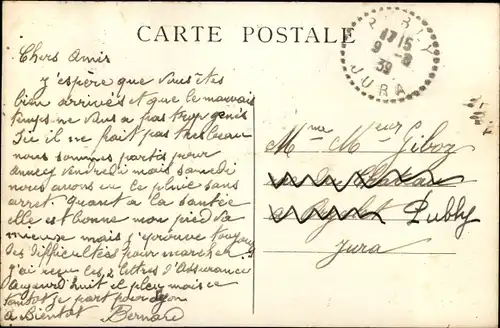 CARTE POSTALE
Chers Amis
J'espère que vous êtes
bien arrivés et que le mauvais
temps ne vous a pas trop genés
Ici il ne fait pas tres beau
nous sommes partis pour
Annecy vendredi mais samedi
nous avons eu de la pluie sans
arret Quant a la santée
elle est bonne mon pied va
mieux mais j'éprouve toujours
des difficultées pour marcher
J'ai reçu les 2 lettres d'Assurance
Aujourd'huit il pleu mais ce
tantot je part pour
a Bientot Bernard
PUBLY
17 15
9 - 8
39
JURA
Mme Meur Giboz
Publy
Jura